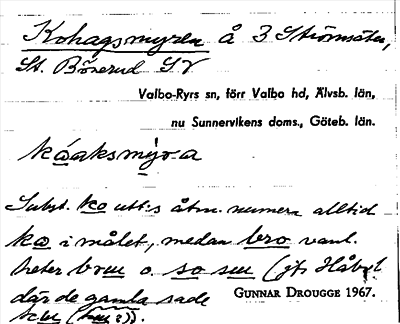 Kohagsmyren å 3 Strömsäter,
St. Bönerud SV
Valbo-Ryrs sn, förr Valbo hd, Älvsb. län,
nu Sunnervikens doms., Göteb. län.
Subst. ko utt:s åtm. numera alltid
ko i målet, medan bro vanl.
heter bru o. so su (jfr Håbol
där de gamla sade
GUNNAR DROUGGE 1967.